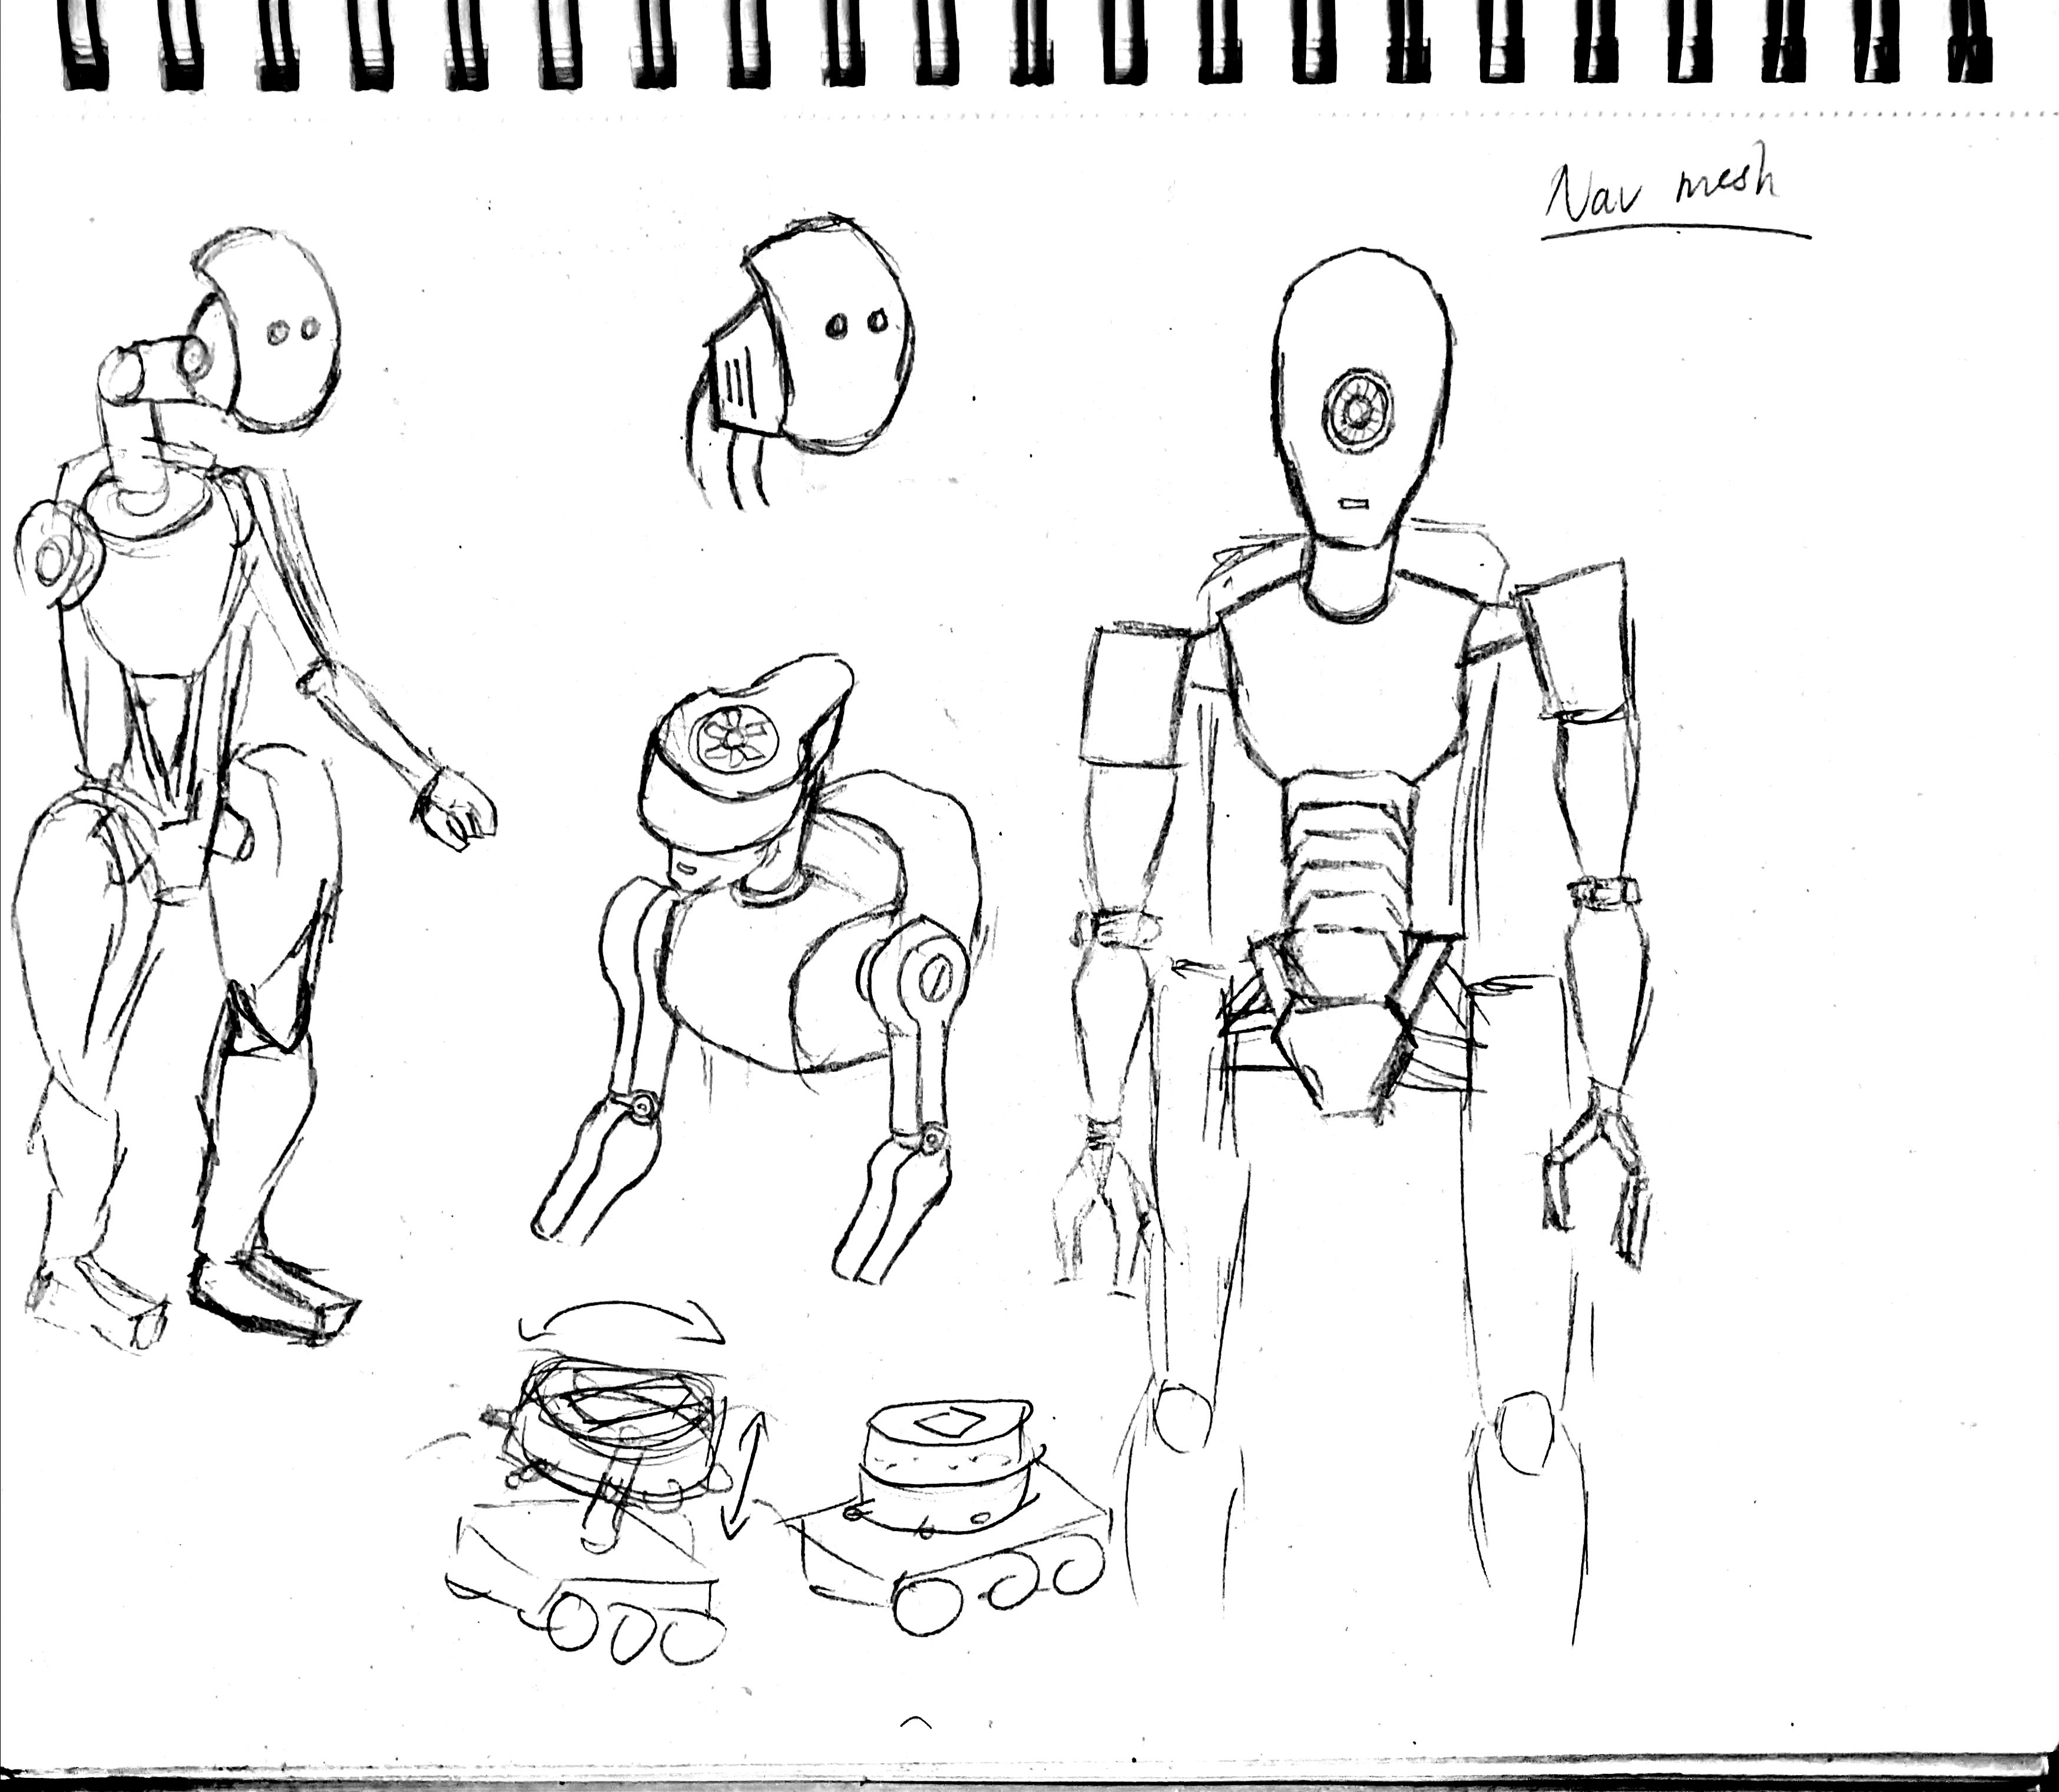 Nav mesh